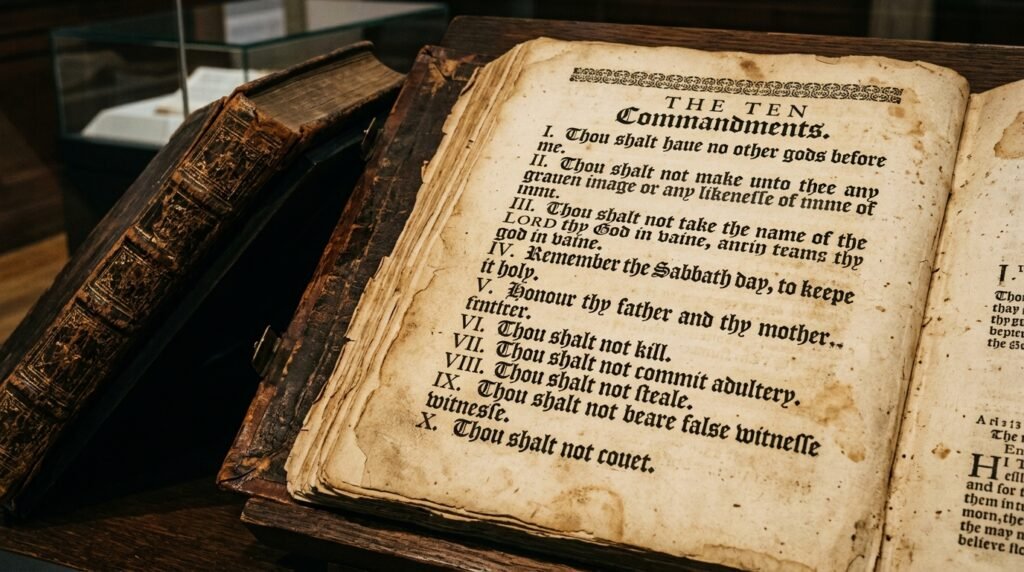 THE TEN
Commandments.
I. Thou shalt haue no other gods before
me.
II. Thou shalt not make unto thee any
grauen image or any likenesse of imme of
immt.
III. Thou shalt not take the name of the
LORD thy God in vaine, ancin teams thy
god in vaine.
IV. Remember the Sabbath day, to keepe
it holy.
V. Honour thy father and thy mother..
VI. Thou shalt not kill.
VII. Thou shalt not commit adultery.
VIII. Thou shalt not ſteale.
IX. Thou shalt not beare false witneſſe
witneſſe.
X. Thou shalt not couet.
I.
Tho
thay
thy
the
The
HI T
and for
them in
morn, the
the may
believe